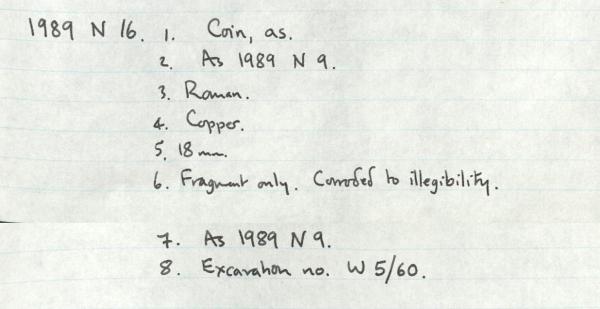 1989 N 16. 1. Coin, as.
2. As 1989 N 9.
3. Roman.
4. Copper.
5. 18 mm.
6. Fragment only. Corroded to illegibility.
7. As 1989 N 9.
8. Excavation no. W 5/60.